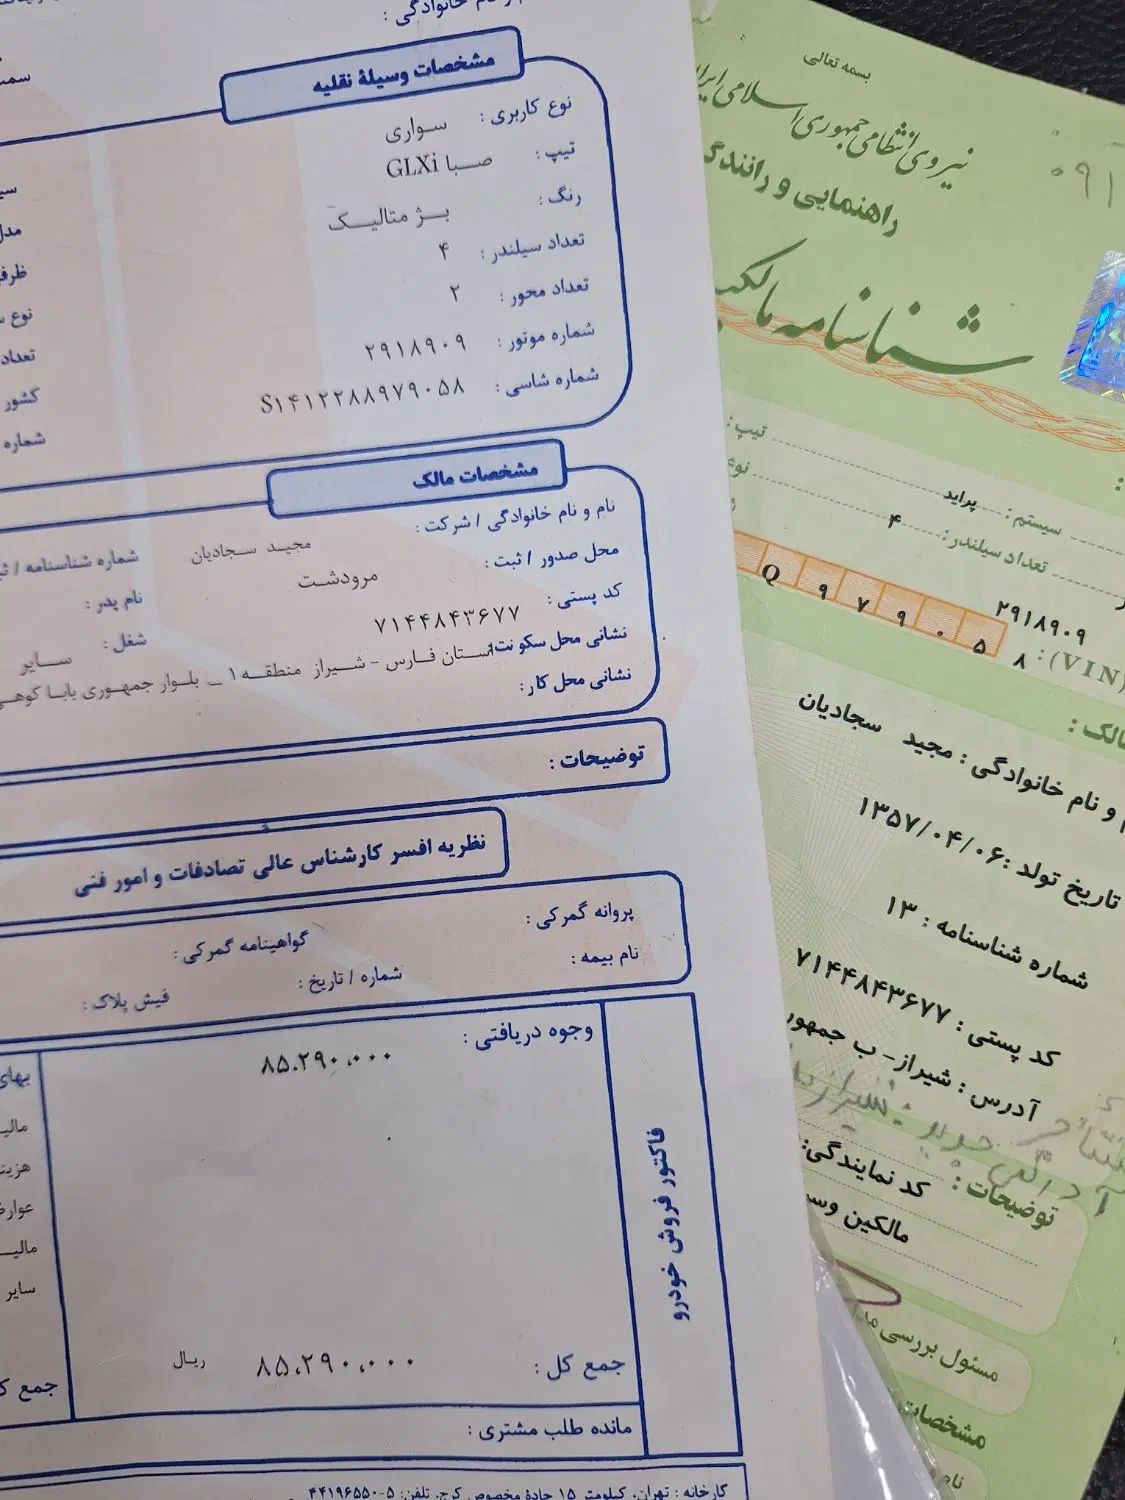 نام خانوادگی :
مشخصات وسیلهٔ نقلیه
نوع کاربری : سواری
تیپ : صبا GLXi
رنگ : بژ متالیک
تعداد سیلندر : ۴
تعداد محور : ۲
شماره موتور : ۲۹۱۸۹۰۹
شماره شاسی : S۱۴۱۲۲۸۸۹۷۹۰۵۸
نوع
تعداد
کشور
شماره
مشخصات مالک
نام و نام خانوادگی / شرکت : مجید سجادیان
شماره شناسنامه /
محل صدور / ثبت : مرودشت
نام پدر :
کد پستی : ۷۱۴۴۸۴۳۶۷۷
شغل : سایر
نشانی محل سکونت: استان فارس - شیراز منطقه ۱ _ بلوار جمهوری بابا کوهی
نشانی محل کار:
توضیحات :
نظریه افسر کارشناس عالی تصادفات و امور فنی
پروانه گمرکی :
گواهینامه گمرکی :
نام بیمه :
شماره / تاریخ :
فیش پلاک :
فاکتور فروش خودرو
وجوه دریافتی :
۸۵.۲۹۰.۰۰۰
بهای
سایر
جمع کل : ۸۵.۲۹۰.۰۰۰ ریال
جمع
مانده طلب مشتری :
کارخانه : تهران، کیلومتر ۱۵ جادهٔ مخصوص کرج، تلفن: ۵-۴۴۱۹۶۵۵۰
بسمه تعالی
نیروی انتظامی جمهوری اسلامی ایران
راهنمایی و رانندگی
۰۹۱
شناسنامه مالکیت
سیستم : پراید تیپ :
تعداد سیلندر: ۴ نوع
۲۹۱۸۹۰۹
(VIN) : Q ۹ ۷ ۹ ۰ ۵ ۸
مالک :
و نام خانوادگی : مجید سجادیان
تاریخ تولد : ۱۳۵۷/۰۴/۰۶
شماره شناسنامه : ۱۳
کد پستی : ۷۱۴۴۸۴۳۶۷۷
آدرس : شیراز- ب جمهور
آدرس جدید : شیراز
توضیحات : کد نمایندگی:
مالکین
مسئول بررسی
مشخصات
نام